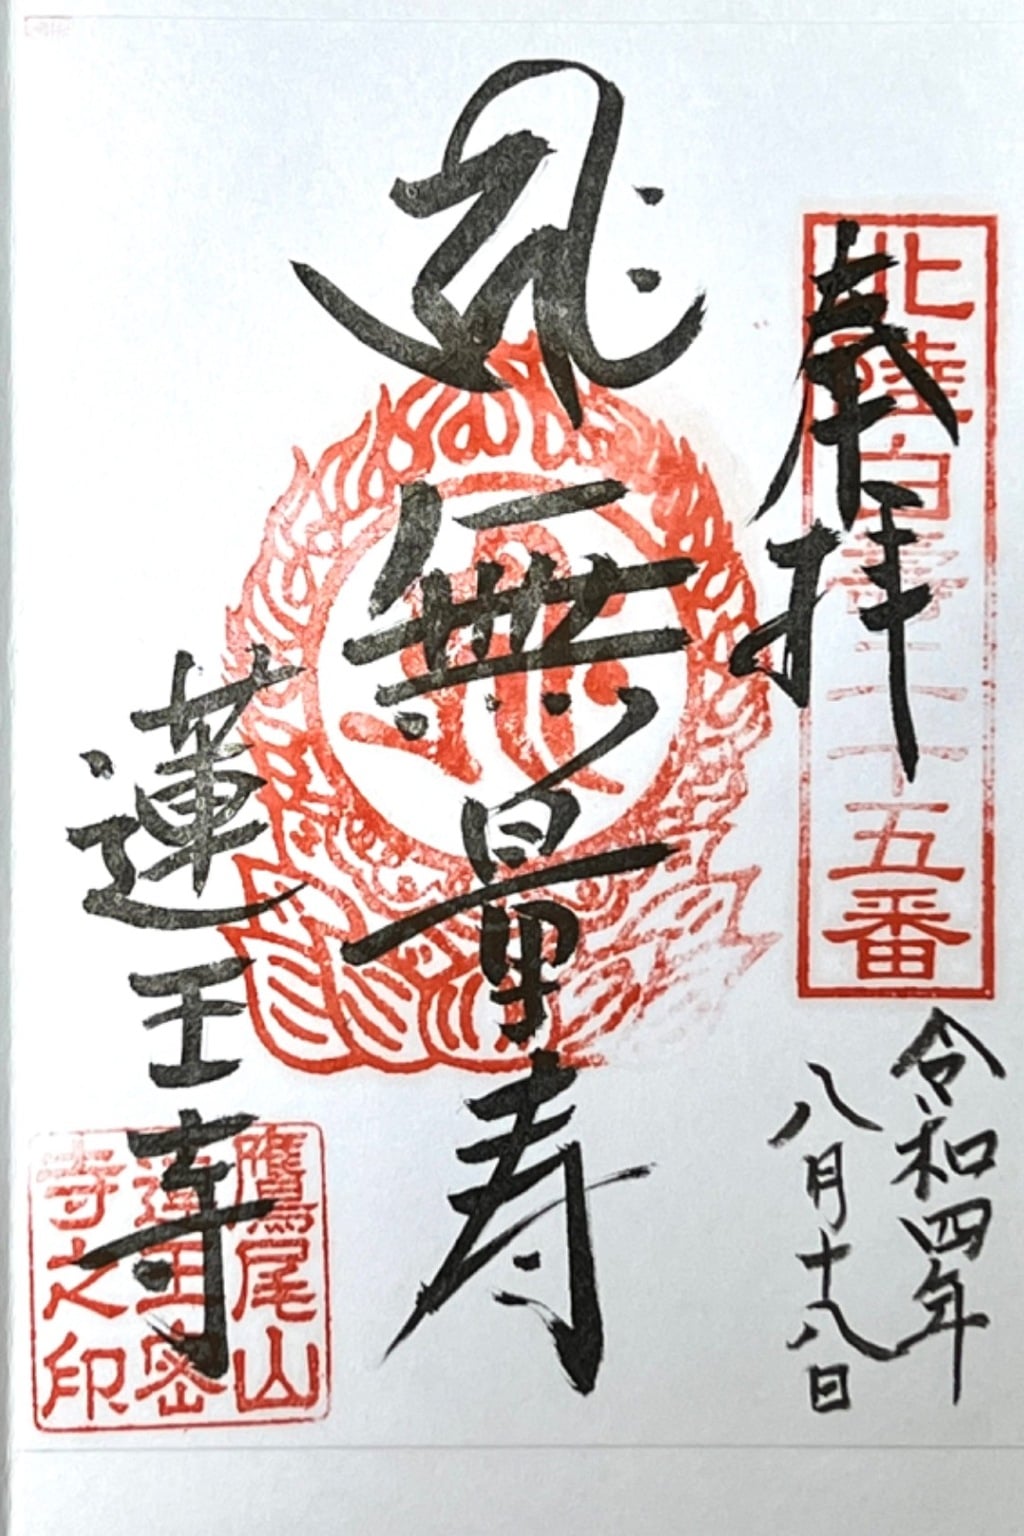 奉拝
北陸白壽二十五番
令和四年
八月十八日
無量寿
蓮王寺
鷹尾山
蓮王密
寺之印